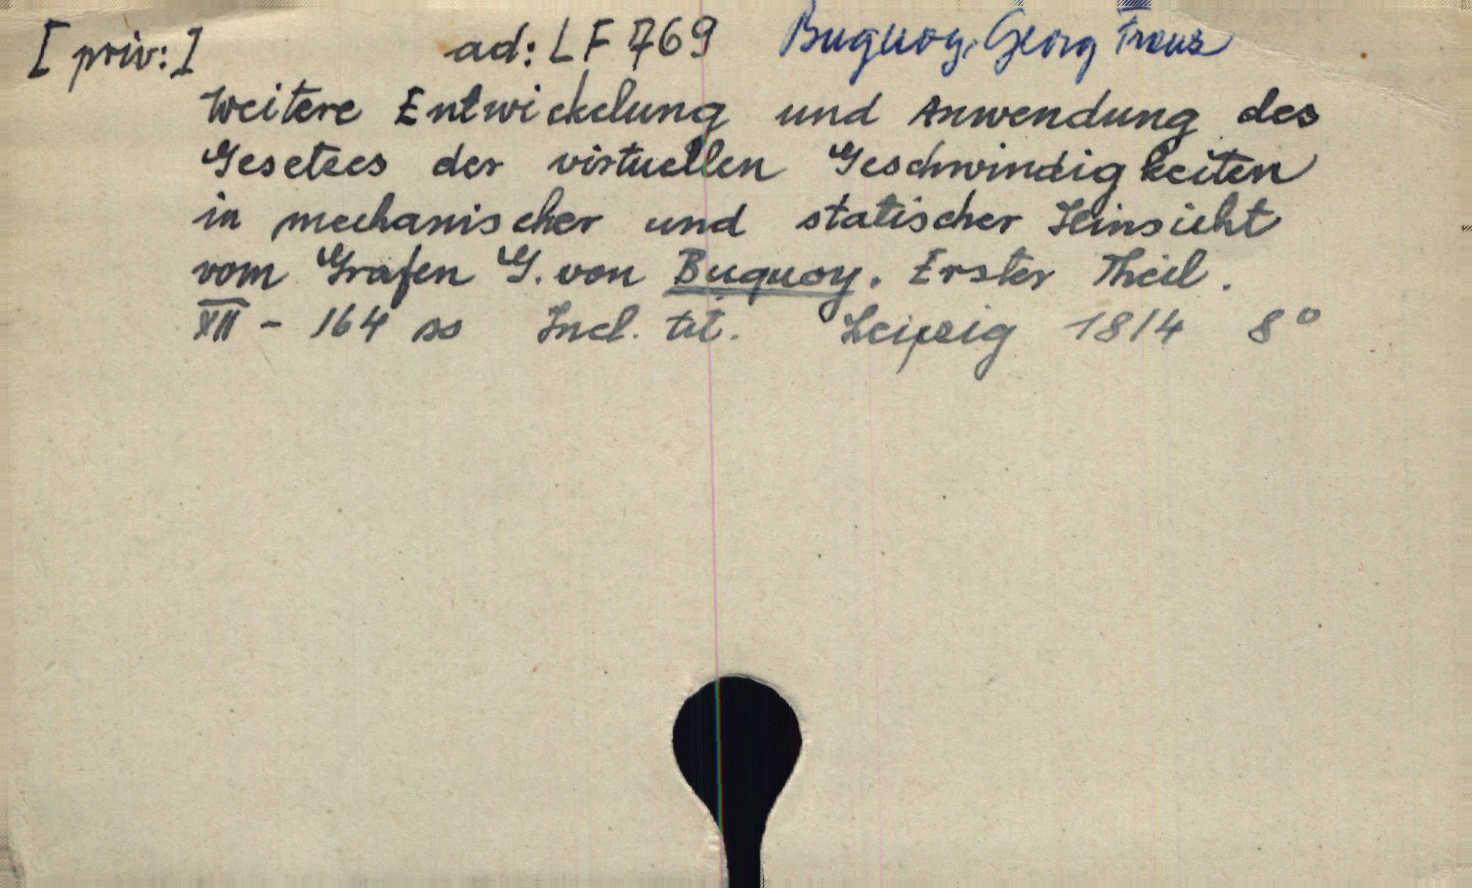 [priv:] ad: LF 769 Buquoy, Georg Franz
Weitere Entwickelung und Anwendung des
Gesetzes der virtuellen Geschwindigkeiten
in mechanischer und statischer Hinsicht
vom Grafen G. von Buquoy. Erster Theil.
XII - 164 ss Incl. tit. Leipzig 1814 8°